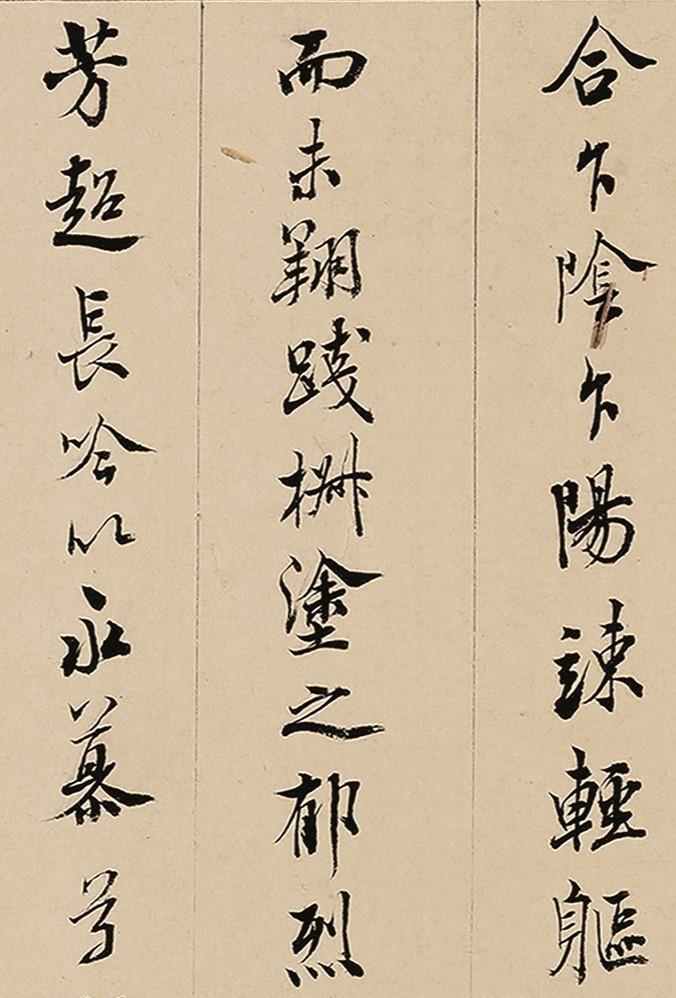 合乍陰乍陽諫輕軀
而未翔踐椒塗之郁烈
芳超長吟以永慕兮